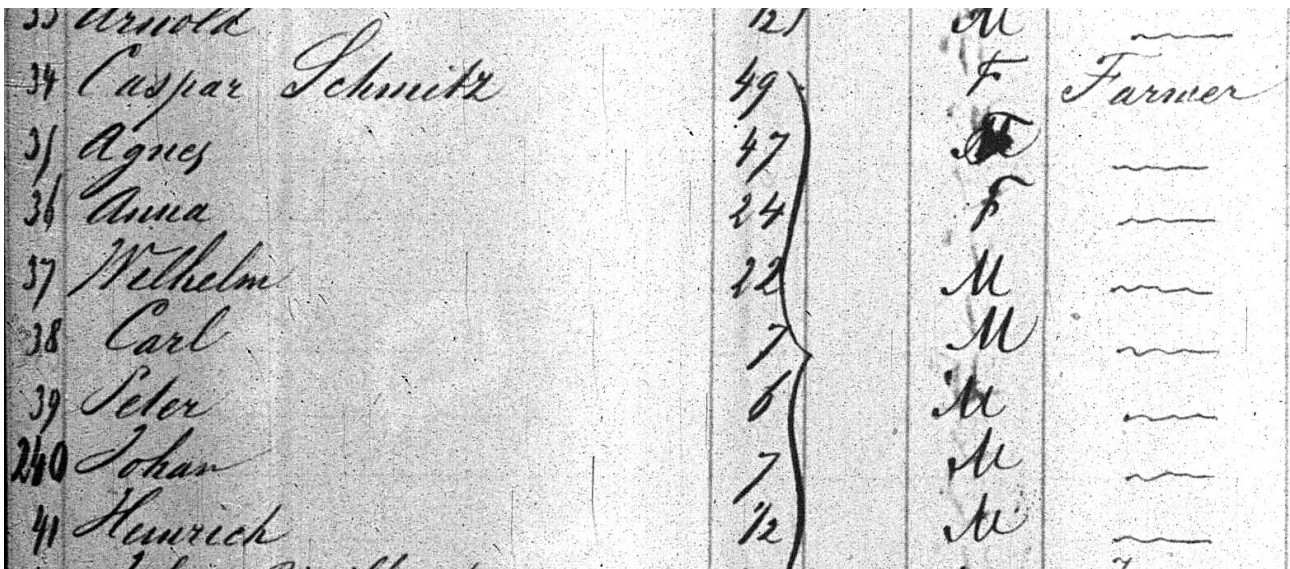 33 Arnold 1/2 M
34 Caspar Schmitz 49 F Farmer
35 Agnes 47
36 Anna 24 F
37 Wilhelm 22 M
38 Carl 7 M
39 Peter 6 M
240 Johan 7 M
41 Heinrich 1/2 M